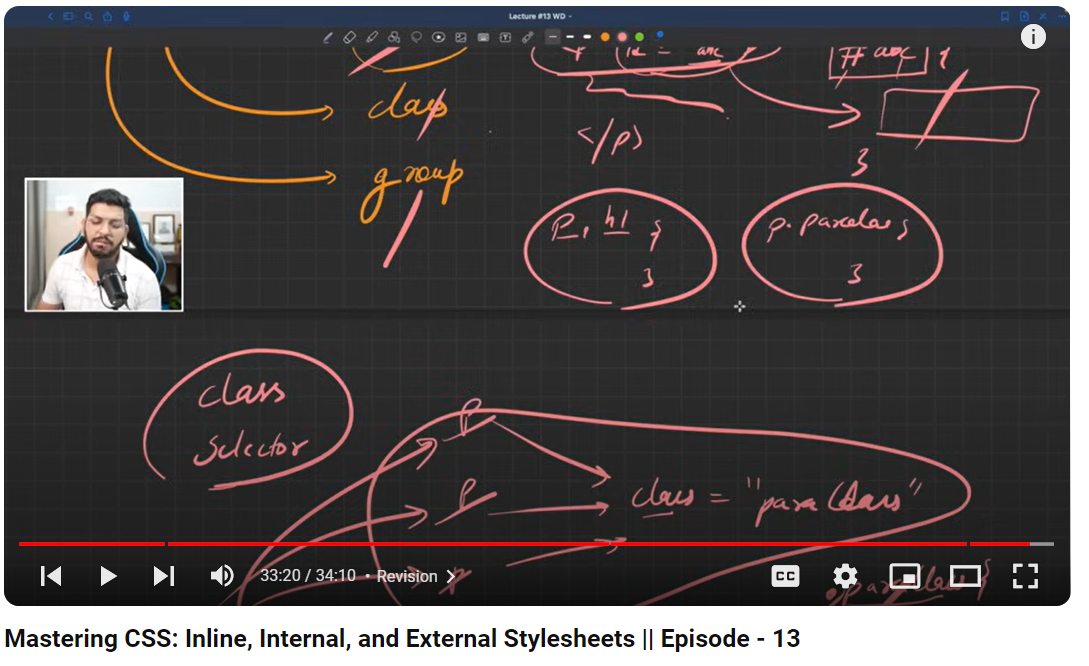 Lecture #13 WD
class
group
</p>
# abc {
}
P, h1 {
}
p.paraclass {
}
class
selector
P
P
class = "paraclass"
P
.paraclass {
33:20 / 34:10 • Revision
CC
Mastering CSS: Inline, Internal, and External Stylesheets || Episode - 13